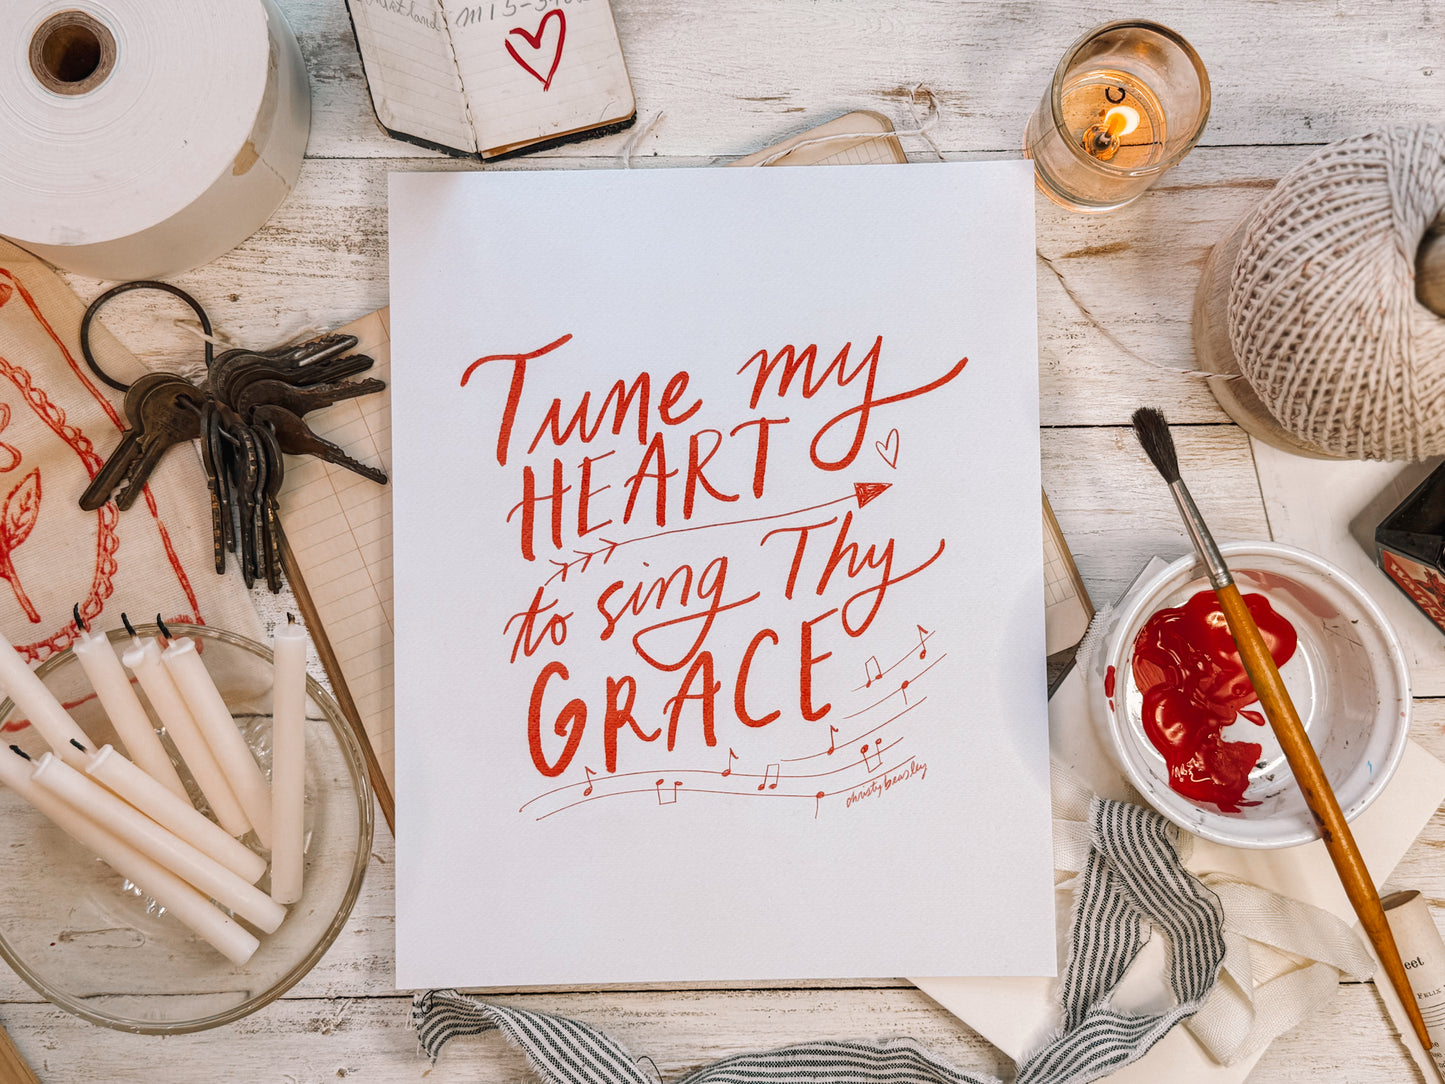 m15-
Tune my
HEART
to sing Thy
GRACE
christy beasley
eet
FELIX